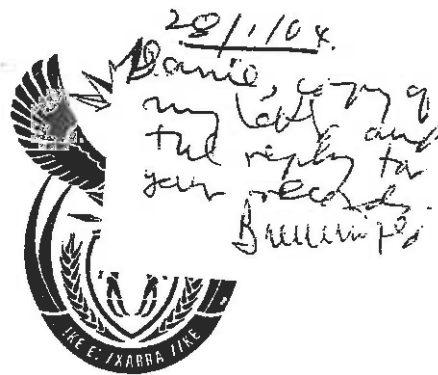 28/1/04.
Danie, copy of
my letter and
the reply for
your records.
!KE E: /XARRA //KE